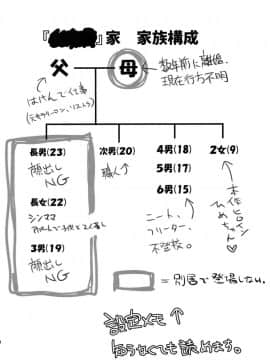 『 』家 家族構成
父
母
数年前に離婚、
現在行方不明
はけんで仕事
(元サラリーマン、リストラ)
長男(23)
顔出し
NG
長女(22)
シンママ
3男(19)
顔出し
NG
次男(20)
職人
4男(18)
5男(17)
6男(15)
ニート、
フリーター、
不登校。
2女(9)
本作ヒロイン
ひめちゃん♡
= 別居で登場しない。
設定メモ↑
知らなくても読めます。